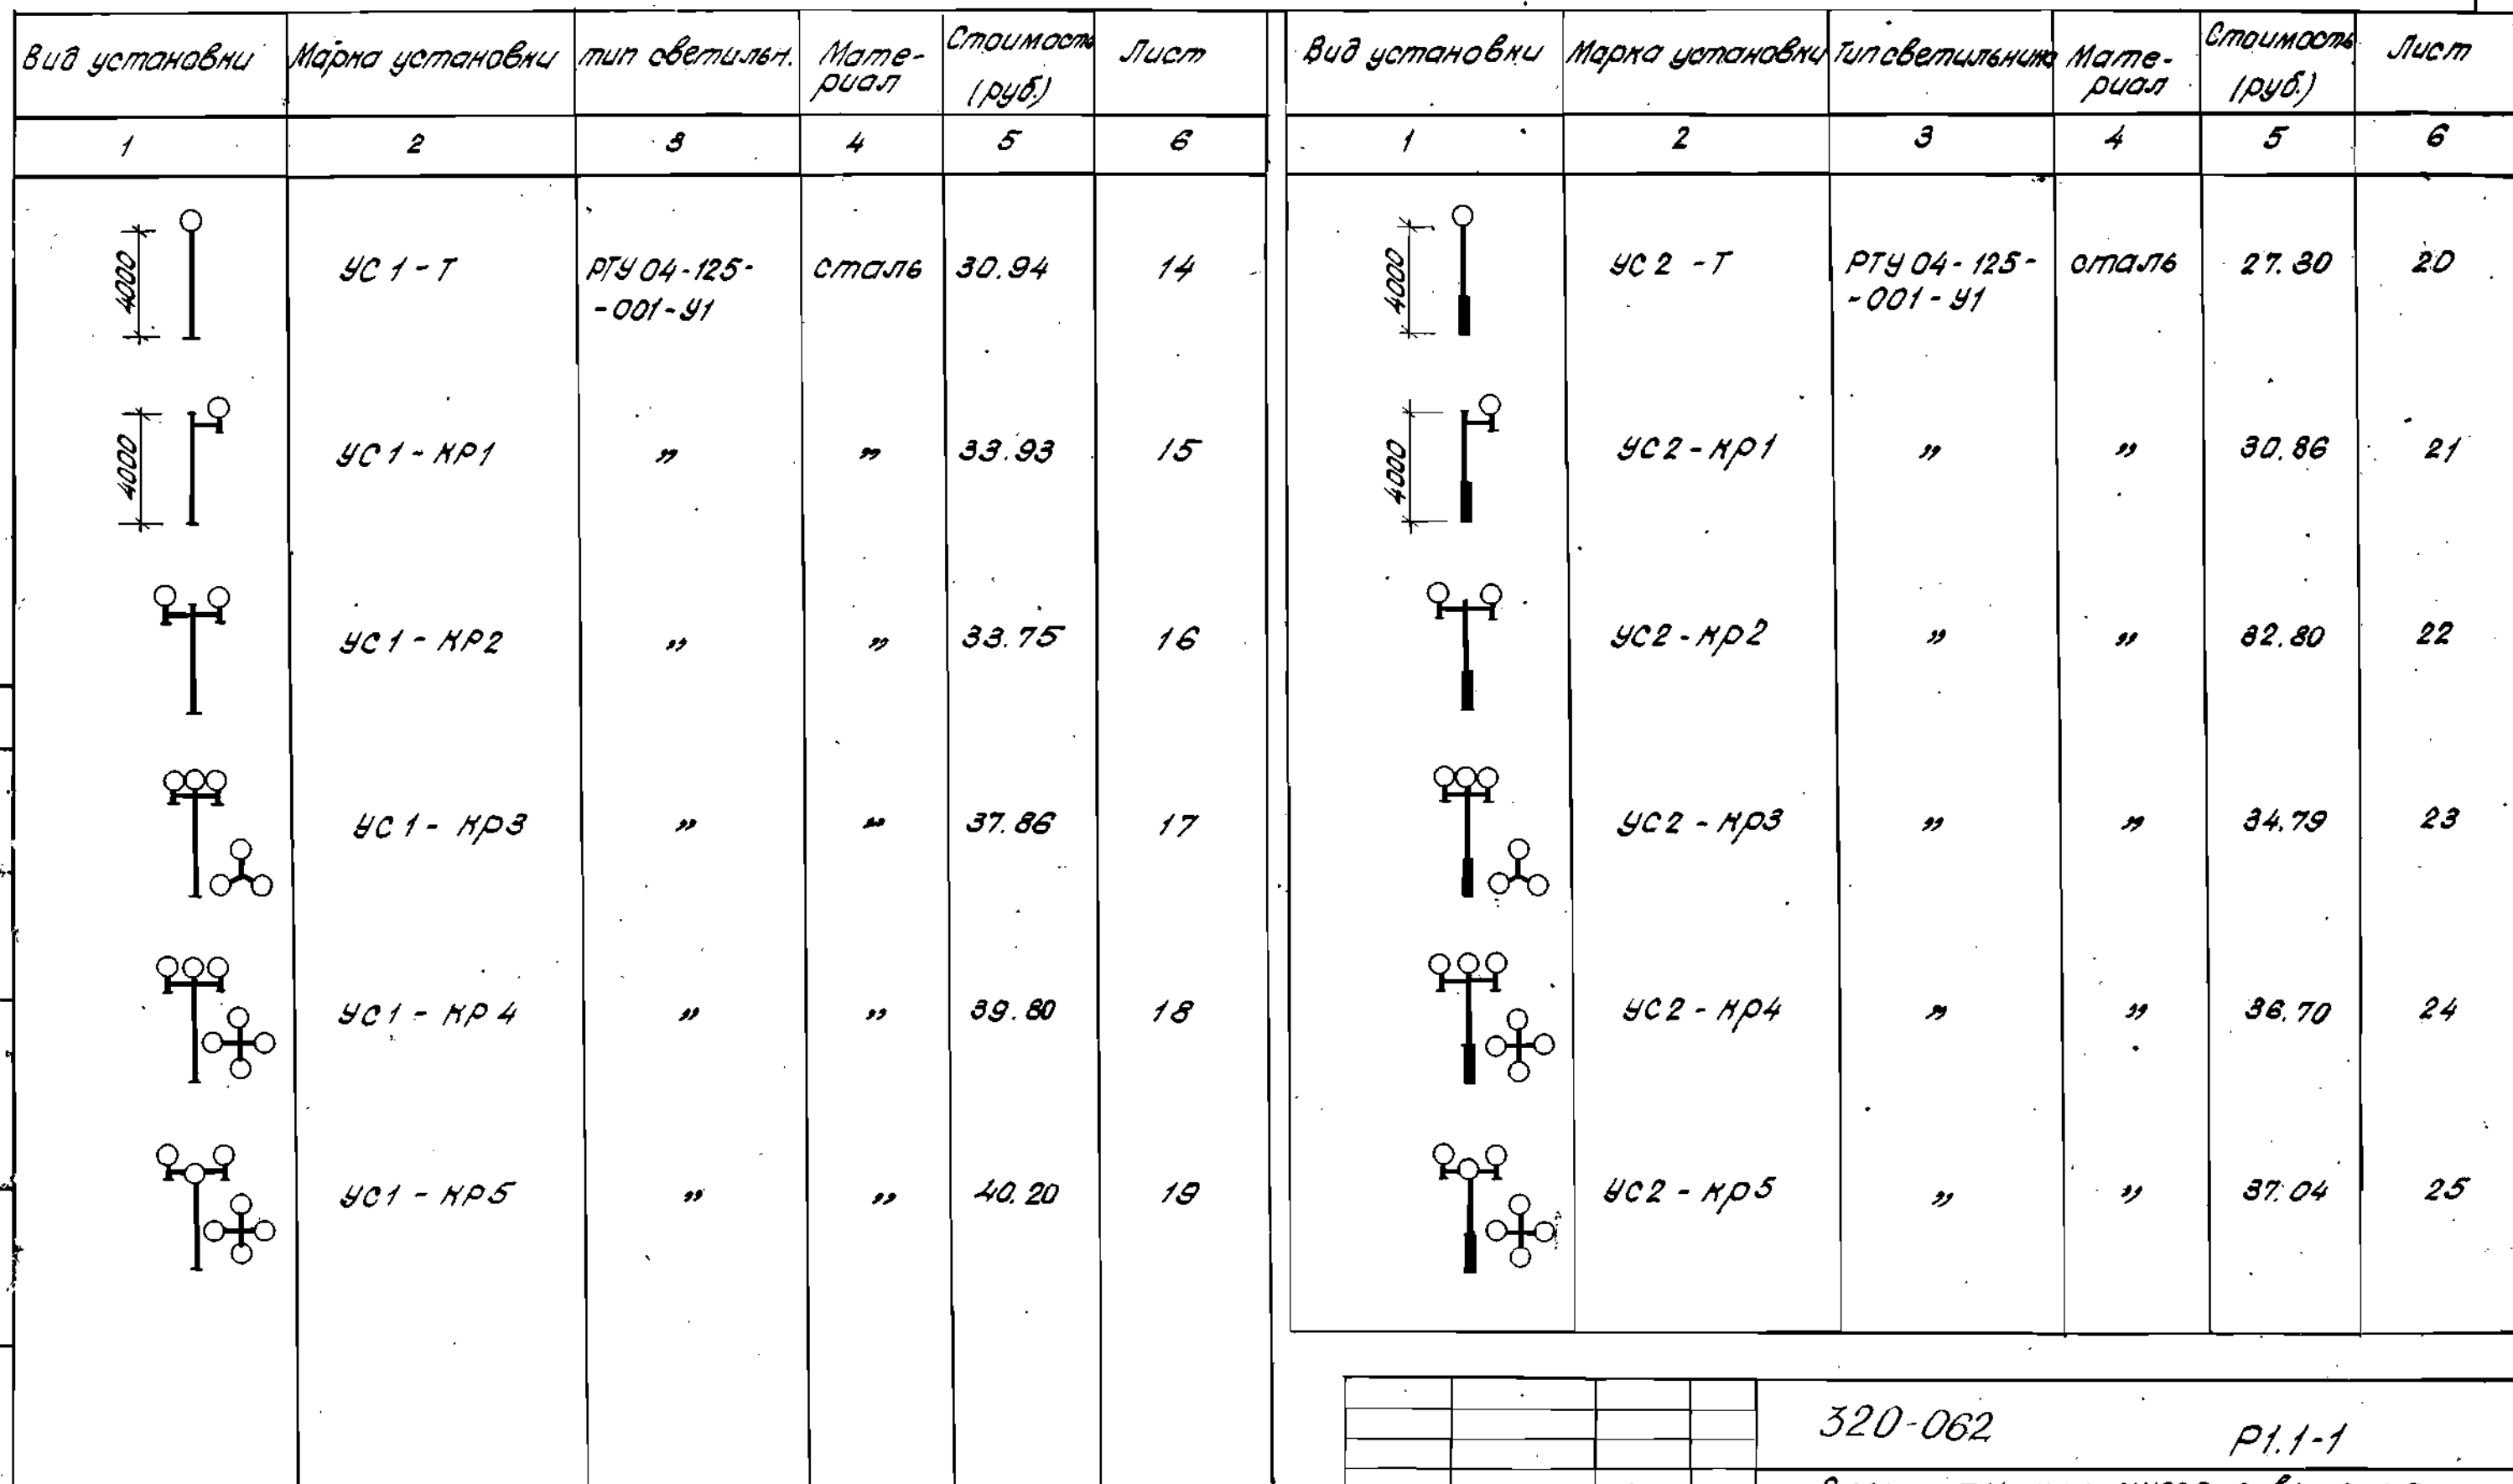 Вид установки Марка установки тип светильн. Мате-риал Стоимость (руб.) Лист
1 2 3 4 5 6
4000 УС 1 - Т РТУ 04-125--001-У1 сталь 30.94 14
4000 УС 1 - КР1 " " 33.93 15
УС 1 - КР2 " " 33.75 16
УС 1 - КР3 " " 37.86 17
УС1 - КР4 " " 39.80 18
УС1 - КР5 " " 40.20 19
Вид установки Марка установки Тип светильника Мате-риал Стоимость (руб.) Лист
1 2 3 4 5 6
4000 УС 2 - Т РТУ 04-125--001-У1 сталь 27.30 20
4000 УС2 - КР1 " " 30.86 21
УС2 - КР2 " " 32.80 22
УС2 - КР3 " " 34.79 23
УС2 - КР4 " " 36.70 24
УС2 - КР5 " " 37.04 25
320-062 Р1.1-1